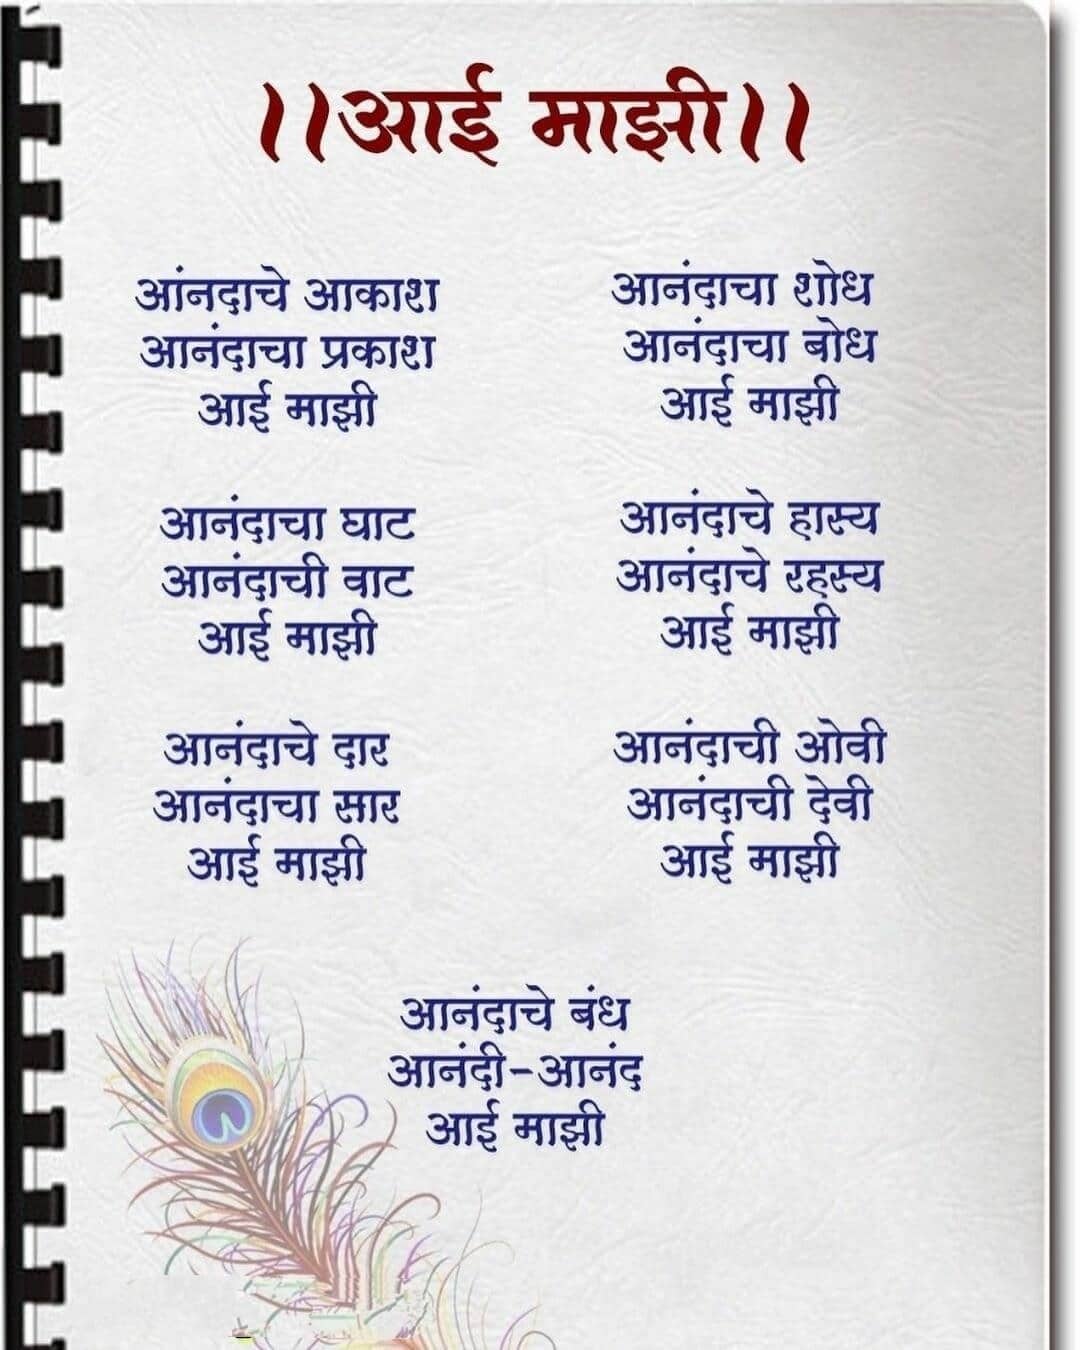 ।।आई माझी।।
आंनदाचे आकाश
आनंदाचा प्रकाश
आई माझी
आनंदाचा घाट
आनंदाची वाट
आई माझी
आनंदाचे दार
आनंदाचा सार
आई माझी
आनंदाचा शोध
आनंदाचा बोध
आई माझी
आनंदाचे हास्य
आनंदाचे रहस्य
आई माझी
आनंदाची ओवी
आनंदाची देवी
आई माझी
आनंदाचे बंध
आनंदी-आनंद
आई माझी